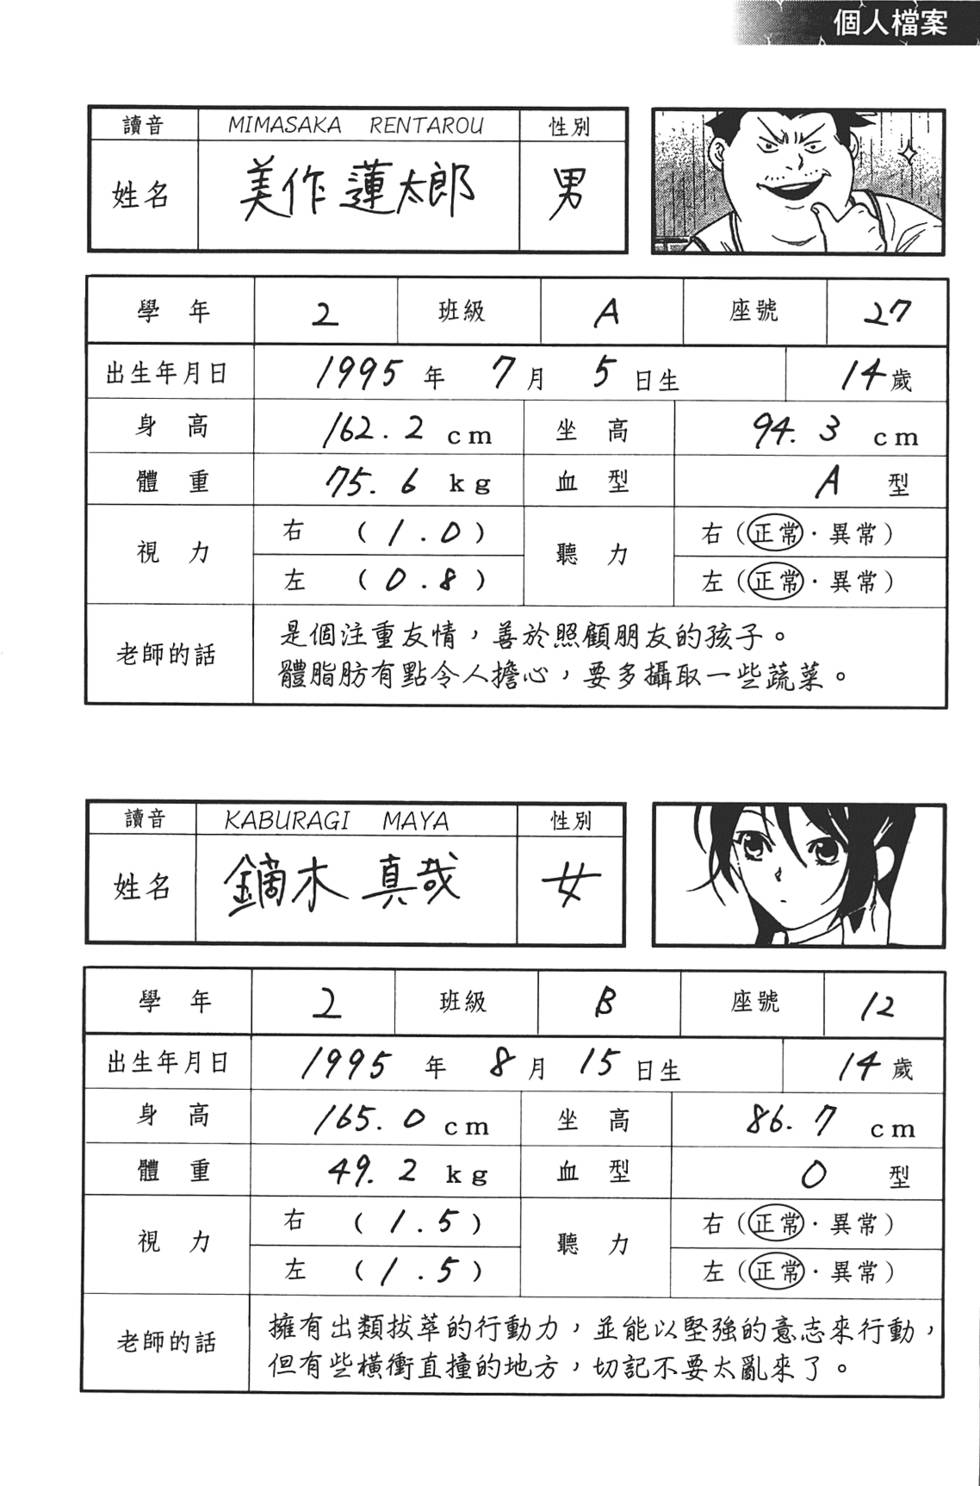 個人檔案
讀音 MIMASAKA RENTAROU 性別
姓名 美作 蓮太郎 男
學年 2 班級 A 座號 27
出生年月日 1995 年 7 月 5 日生 14 歲
身高 162.2 cm 坐高 94.3 cm
體重 75.6 kg 血型 A 型
視力 右 (1.0) 聽力 右(正常・異常)
左 (0.8) 左(正常・異常)
老師的話 是個注重友情，善於照顧朋友的孩子。
體脂肪有點令人擔心，要多攝取一些蔬菜。
讀音 KABURAGI MAYA 性別
姓名 鏑木 真哉 女
學年 2 班級 B 座號 12
出生年月日 1995 年 8 月 15 日生 14 歲
身高 165.0 cm 坐高 86.7 cm
體重 49.2 kg 血型 O 型
視力 右 (1.5) 聽力 右(正常・異常)
左 (1.5) 左(正常・異常)
老師的話 擁有出類拔萃的行動力，並能以堅強的意志來行動，
但有些橫衝直撞的地方，切記不要太亂來了。